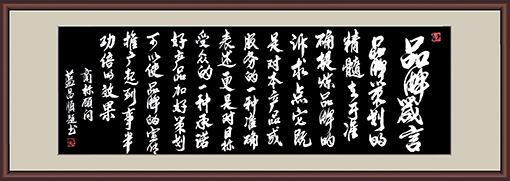 品牌箴言
品牌策划的
精髓在于准
确提炼品牌的
诉求点它既
是对本产品或
服务的一种准确
表述更是对目标
受众的一种承诺
好产品和好策划
可以使品牌的宣传
推广起到事半
功倍的效果
商标顾问
蓝昌顺题书